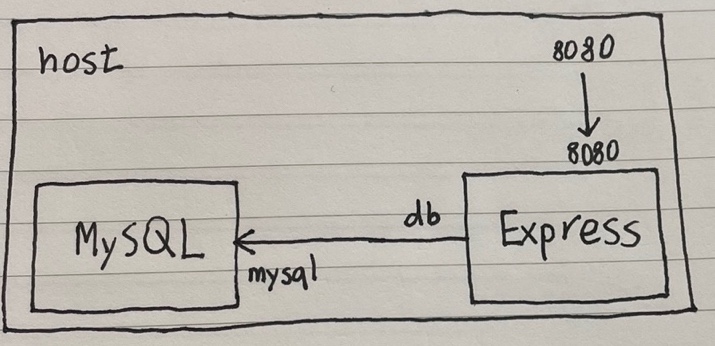 host
8080
8080
MySQL
db
Express
mysql